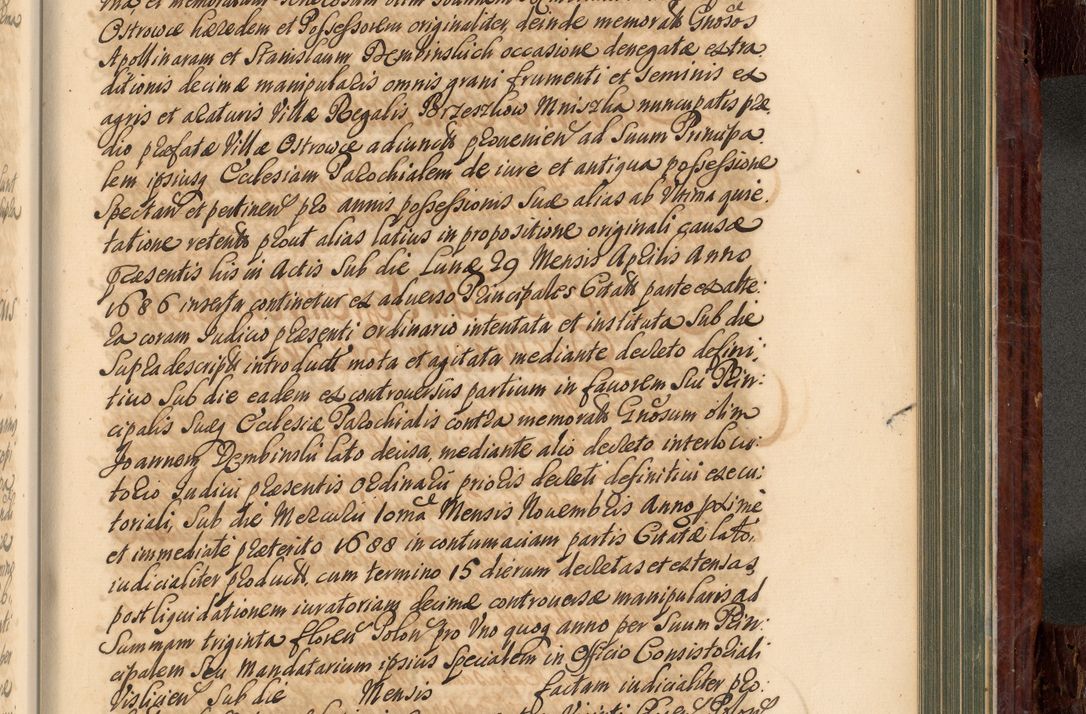 Ostrowce hæredem et Possessorem originaliter, deinde memorat Gnosos
Apollinaram et Stanislaum Dembinskich occasione denegatæ extra-
ditionis decimæ manipularis omnis grani frumenti et seminis ex
agris et araturis Villæ Regalis Brzeszkow Mniszka nuncupatis præ-
dio præfatæ Villæ Ostrowce adiunct prouenien ad Suum Principa-
lem ipsiusq Ecclesiam Parochialem de iure et antiqua possessione
Spectan et pertinen pro annis possessionis Suæ alias ab Vltima quie-
tatione retent prout alias latius in propositione originali causæ
præsentis his in Actis Sub die Lunæ 29 Mensis Aprilis Anno
1686 inserta continetur ex aduerso Principales Citat parte ex alte-
ra coram Iudicio præsenti Ordinario intentata et instituta Sub die
Supradescript introduct mota et agitata mediante decreto defini-
tiuo Sub die eadem ex controuersiis partium in fauorem Sui Prin:
cipalis Suæq Ecclesiæ Parochialis contra memorat Gnosum olim
Joannem Dembinski lato decisa, mediante alio decreto interlocu:
torio Iudicii præsentis Ordinarii prioris decreti definitiui execu:
toriali, Sub die Mercurii 10ma Mensis Nouembris Anno proxime
et immediate præterito 1688 in contumaciam partis Citatæ lato,
iudicialiter product, cum termino 15 dierum decretas et extensas,
post liquidationem iuratoriam decimæ controuersæ manipularis ad
Summam triginta floren Polon pro Vno quoq anno per Suum Prin:
cipalem Seu Mandatarium ipsius Specialem in Officio Consistoriali
Vislicien Sub die Mensis factam iudicialiter pro: